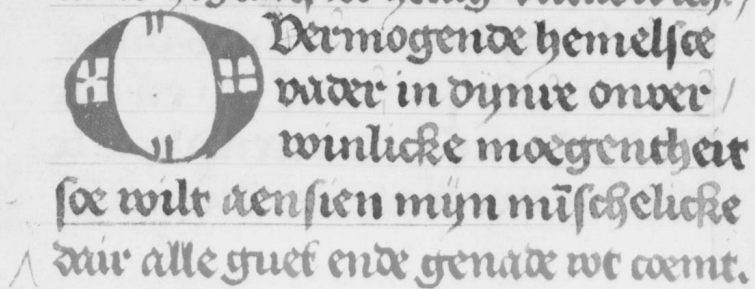 O Vermogende hemelsce
vader in dijnre onver/
winlicke moegentheit
soe wilt aensien mijn mīschelicke
dair alle guet ende genade wt coemt.